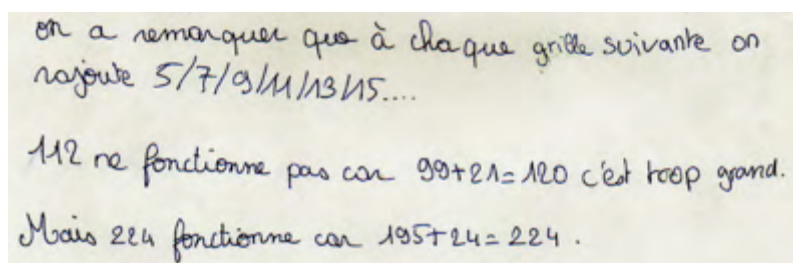 on a remarquer que à chaque grille suivante on
rajoute 5/7/9/11/13/15....
112 ne fonctionne pas car 99+21=120 c'est troop grand.
Mais 224 fonctionne car 195+24=224.